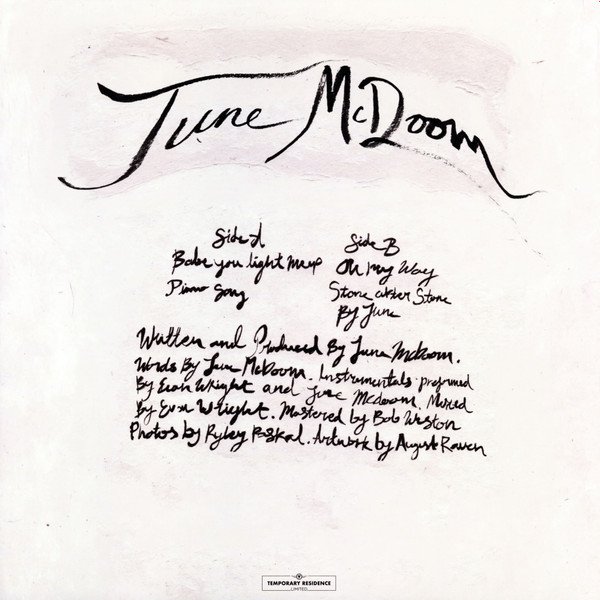 June McDoom
Side A
Babe you light me up
Piano Song
Side B
On My Way
Stone after Stone
By June
Written and Produced By June McDoom.
Words By June McDoom. Instrumentals performed
By Evan Wright and June McDoom. Mixed
By Evan Wright. Mastered by Bob Weston
Photos by Ryley Paskal. Artwork by August Raven
TEMPORARY RESIDENCE
LIMITED